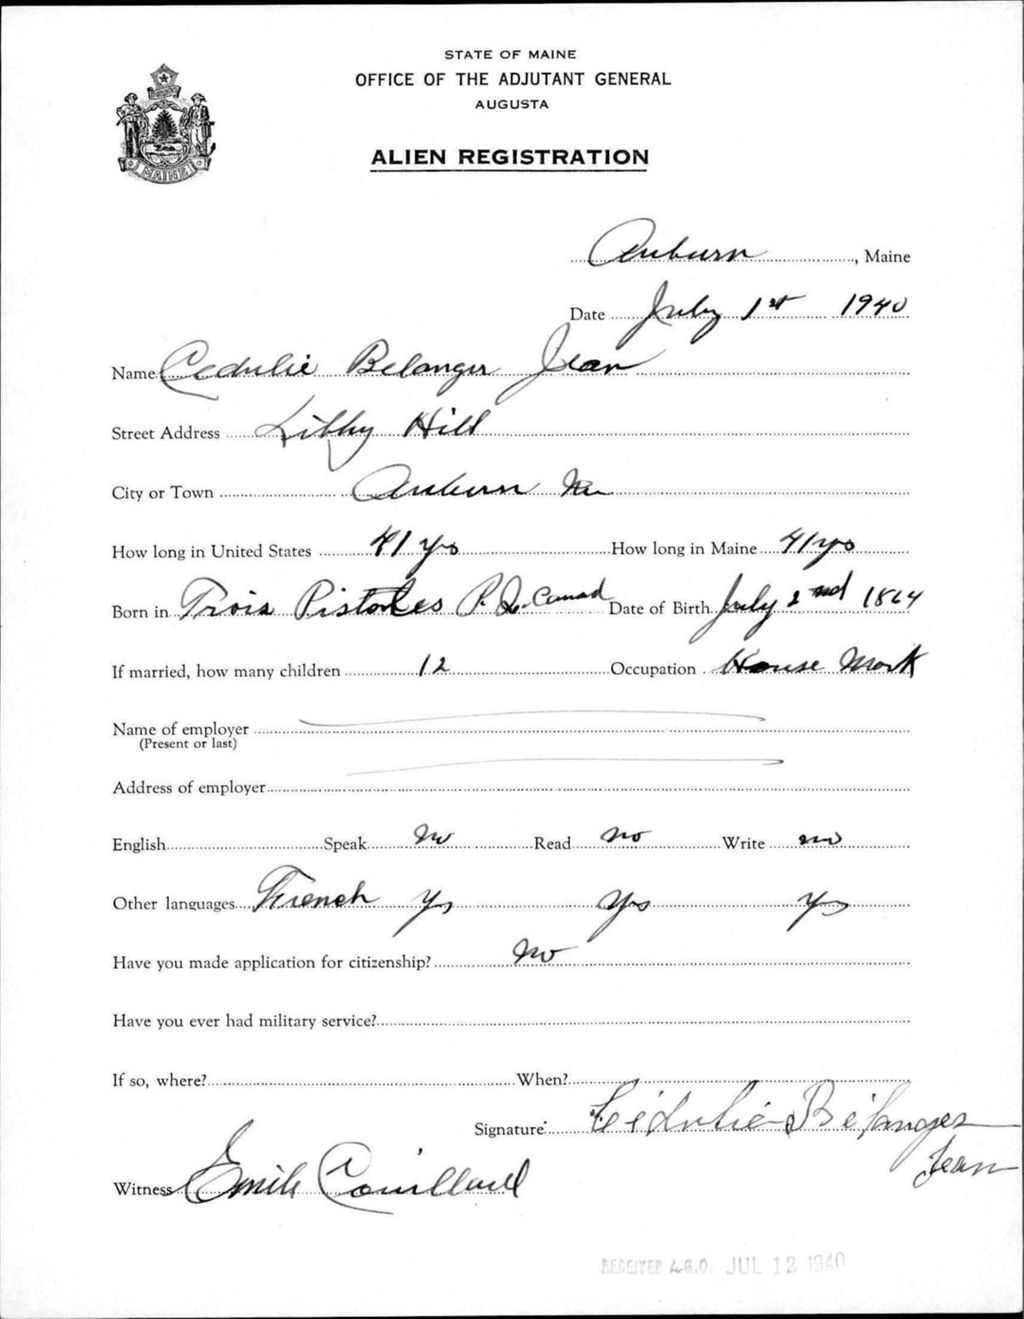 STATE OF MAINE
OFFICE OF THE ADJUTANT GENERAL
AUGUSTA
ALIEN REGISTRATION
MAINE
Auburn, Maine
Date July 1st 1940
Name Cedulie Belanger Jean
Street Address Libby Hill
City or Town Auburn Me
How long in United States 41 yrs How long in Maine 41 yrs
Born in Trois Pistoles P.Q. Canad Date of Birth July 2nd 1864
If married, how many children 12 Occupation House Work
Name of employer
(Present or last)
Address of employer
English Speak no Read no Write no
Other languages French Yes Yes Yes
Have you made application for citizenship? No
Have you ever had military service?
If so, where? When?
Signature Cédulie Bélanger
Jean
Witness Emile Couillard
A.G.O. JUL 12 1940